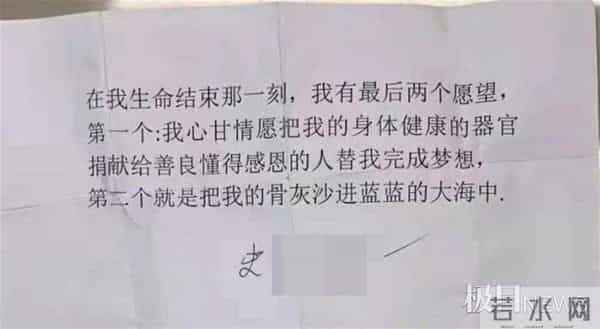 在我生命结束那一刻，我有最后两个愿望，
第一个:我心甘情愿把我的身体健康的器官
捐献给善良懂得感恩的人替我完成梦想，
第二个就是把我的骨灰沙进蓝蓝的大海中.
史
极目NEWS
若水网